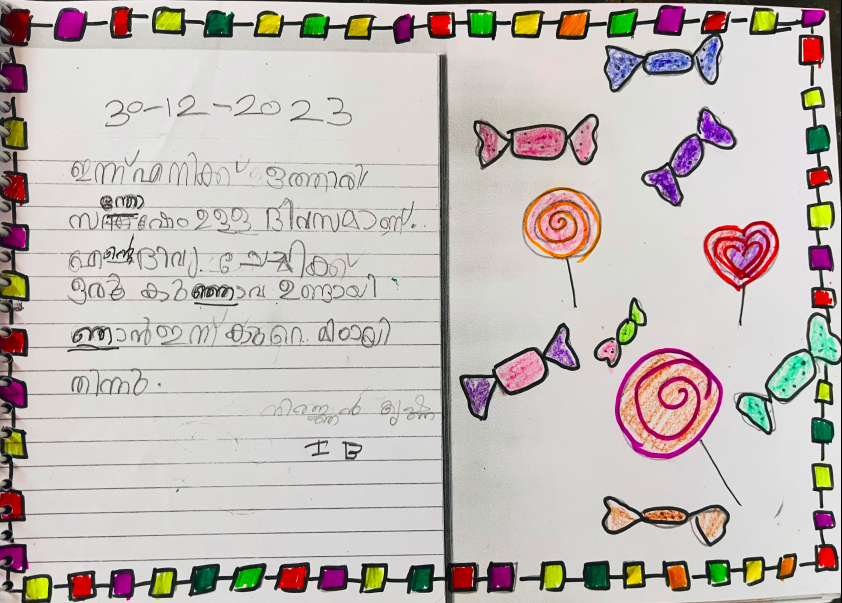 30-12-2023
ഇന്ന് എനിക്ക് ഒത്തിരി
സന്തോഷം ഉള്ള ദിവസമാണ്.
എന്റെ ദിവ്യ ചേച്ചിക്ക്
ഒരു കുഞ്ഞാവ ഉണ്ടായി
ഞാൻ ഇന്ന് കുറെ മിഠായി
തിന്നു.
നിരഞ്ജൻ
I B